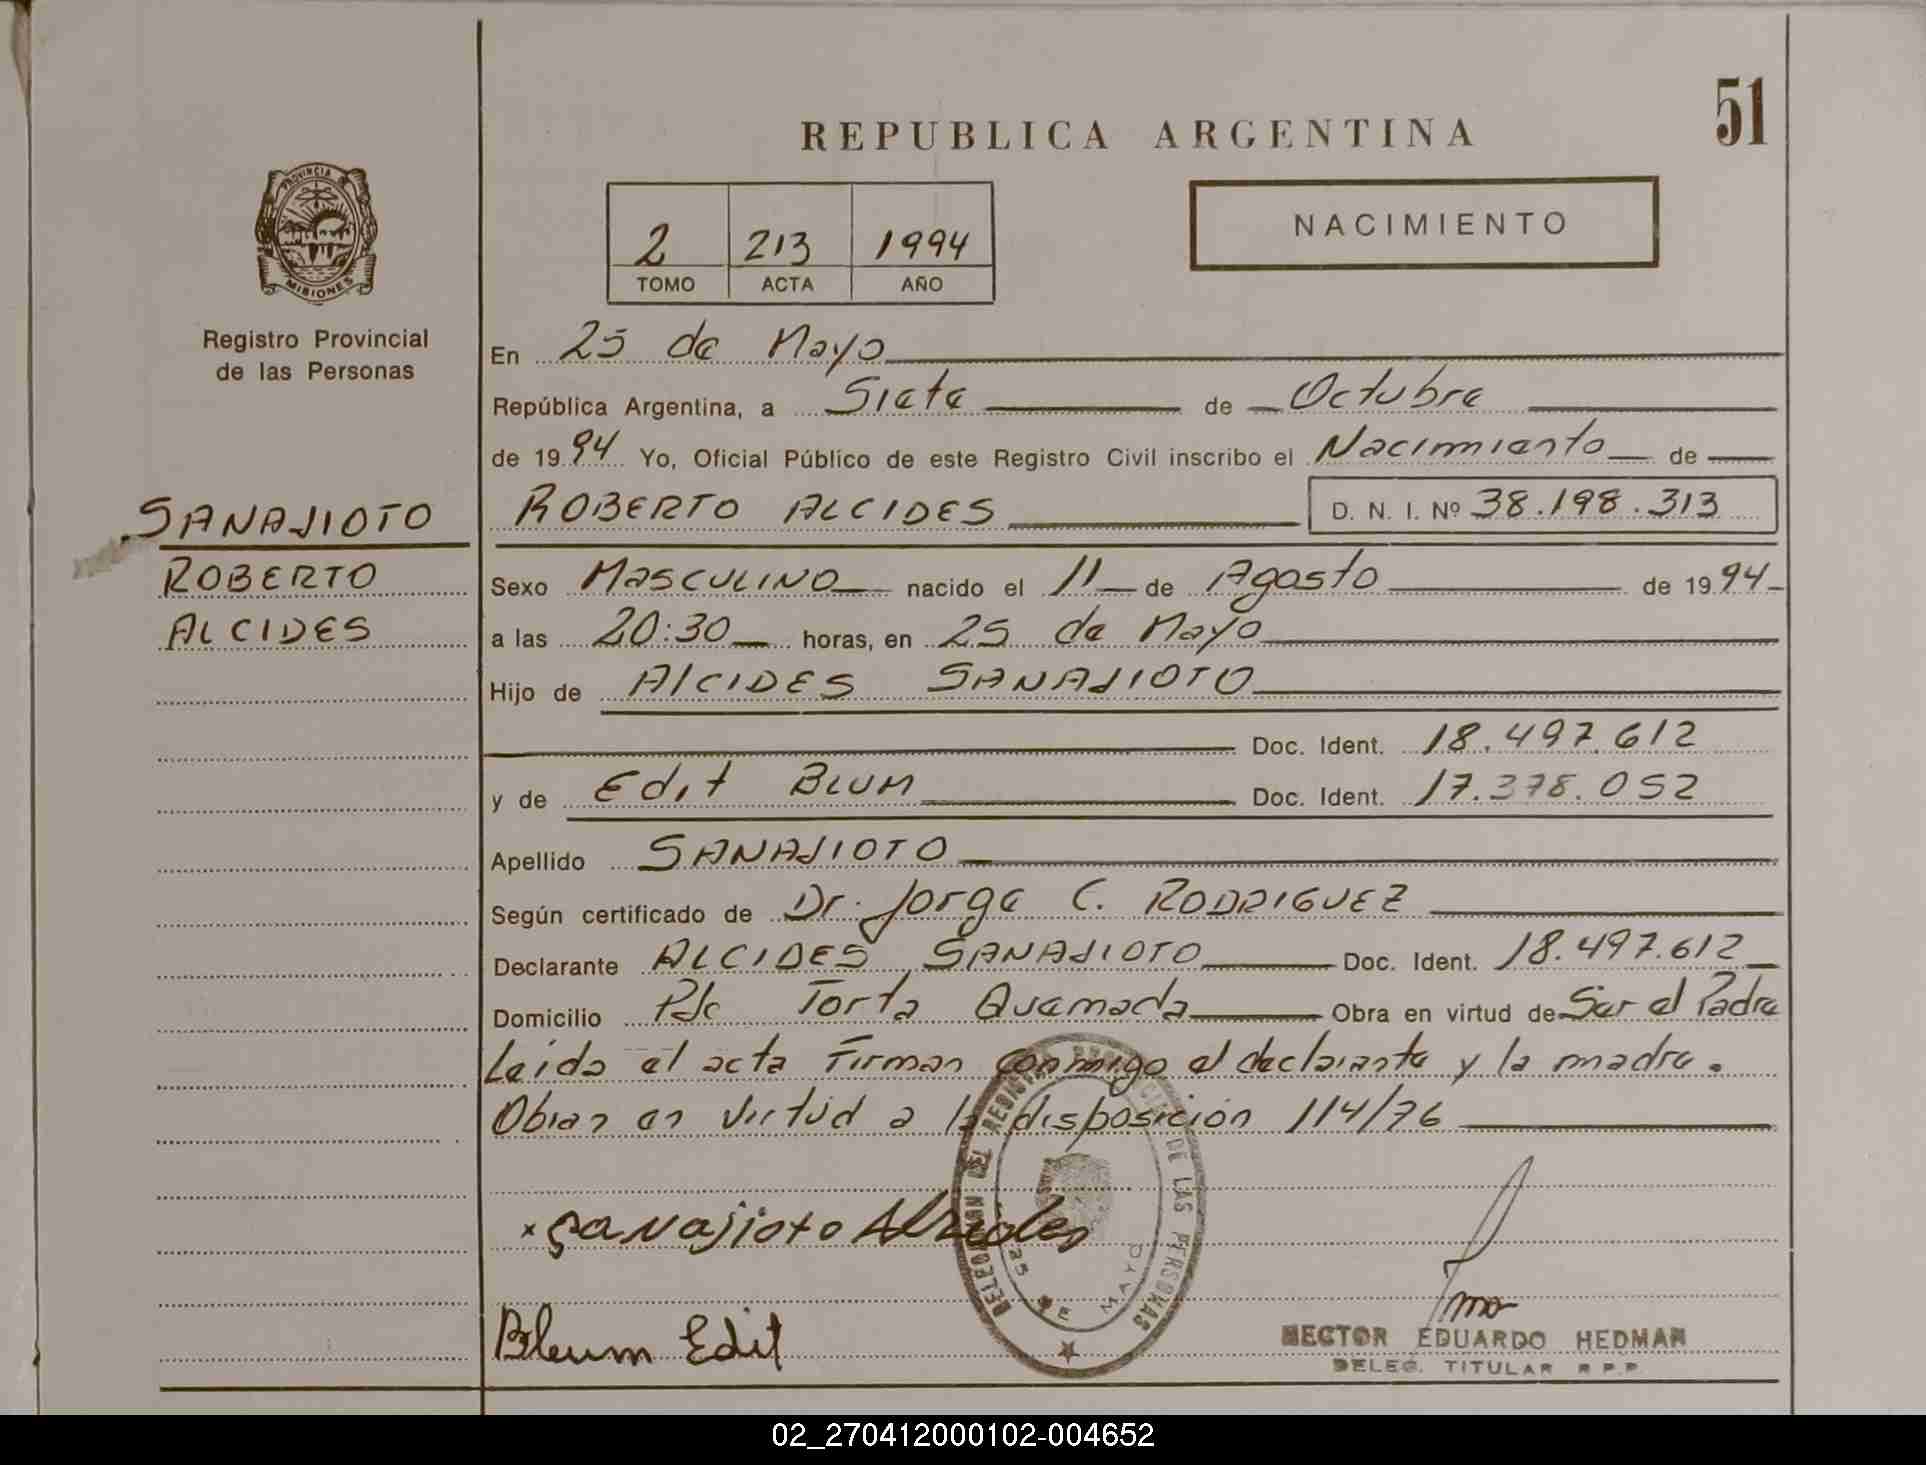 51
REPUBLICA ARGENTINA
NACIMIENTO
2 213 1994
TOMO ACTA AÑO
PROVINCIA DE
MISIONES
Registro Provincial
de las Personas
SANAJIOTO
ROBERTO
ALCIDES
En 25 de Mayo
República Argentina, a Siete de Octubre
de 1994 Yo, Oficial Público de este Registro Civil inscribo el Nacimiento de
ROBERTO ALCIDES D. N. I. Nº 38.198.313
Sexo MASCULINO nacido el 11 de Agosto de 1994
a las 20:30 horas, en 25 de Mayo
Hijo de AlCIDES SANAJIOTO
Doc. Ident. 18.497.612
y de Edit BLUM Doc. Ident. 17.378.052
Apellido SANAJIOTO
Según certificado de Dr. Jorge C. RODRIGUEZ
Declarante ALCIDES SANAJIOTO Doc. Ident. 18.497.612
Domicilio Pje Torta Quemada Obra en virtud de Ser el Padre
Leída el acta Firman conmigo el declarante y la madre.
Obran en virtud a la disposición 114/76
x Sanajioto Alcides
Bleum Edit
DELEGACION DEL REGISTRO PROVINCIAL DE LAS PERSONAS
25 DE MAYO
HECTOR EDUARDO HEDMAN
DELEG. TITULAR R P.P.
02_270412000102-004652